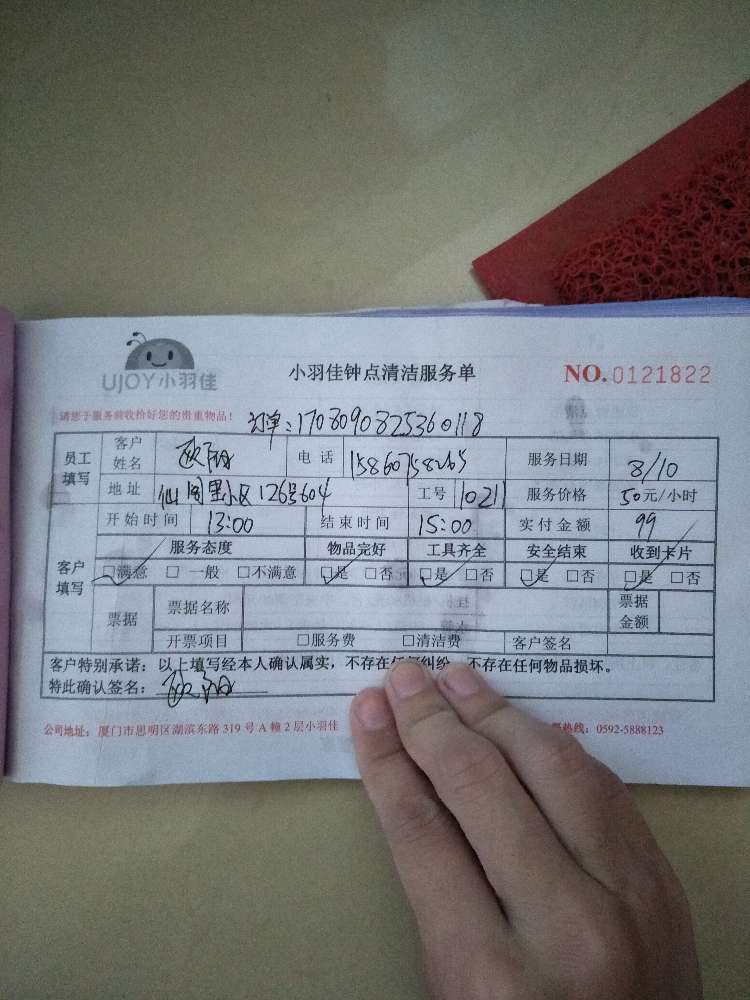 UJOY小羽佳
小羽佳钟点清洁服务单
NO.0121822
请您于服务前收拾好您的贵重物品！
订单：1708090825360118
员工填写 客户姓名 电话 15860758265 服务日期 8/10
地址 仙阁里小区126号604 工号 10211 服务价格 50元/小时
开始时间 13:00 结束时间 15:00 实付金额 99
客户填写 服务态度 物品完好 工具齐全 安全结束 收到卡片
□满意 □一般 □不满意 □是 □否 □是 □否 □是 □否 □是 □否
票据 票据名称 票据金额
开票项目 □服务费 □清洁费 客户签名
客户特别承诺：以上填写经本人确认属实，不存在任何纠纷，不存在任何物品损坏。
特此确认签名：
公司地址：厦门市思明区湖滨东路319号A幢2层小羽佳 热线：0592-5888123